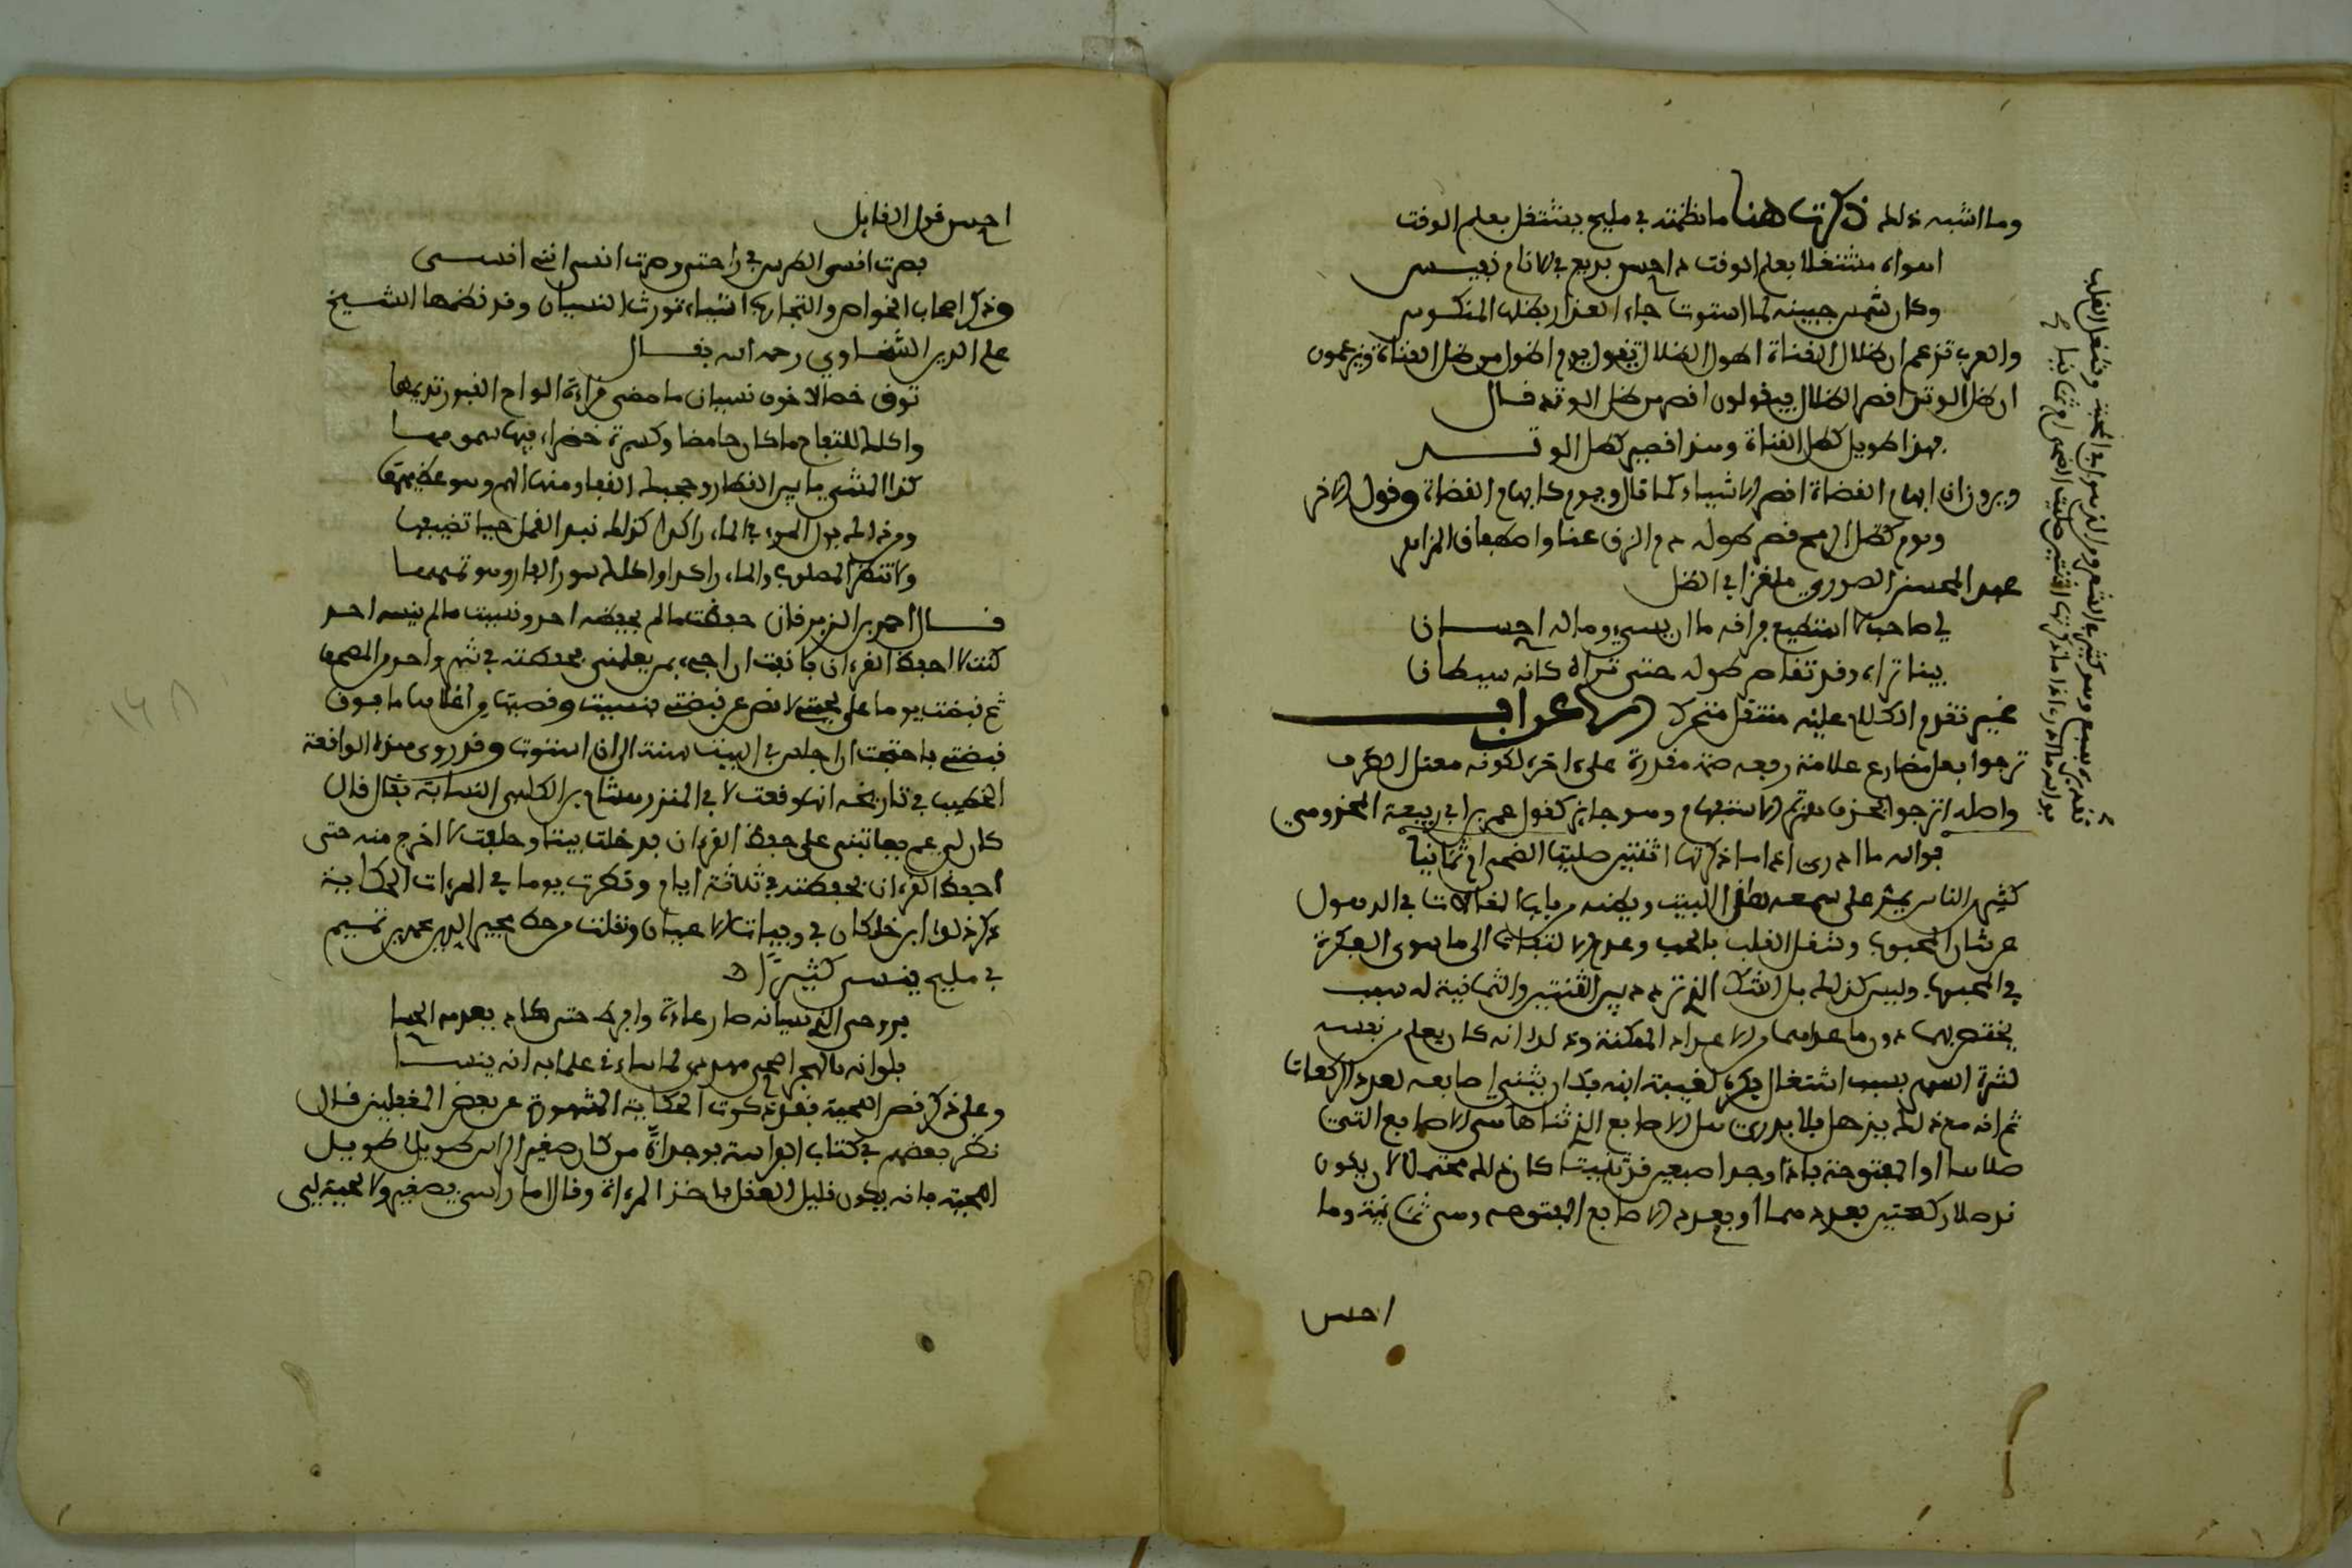 وما اشبه ذلك ذكرت هنا ما نظمته في مليح يشتغل بعلم الوقت
اهواه مشتغلا بعلم الوقت ذا حسن بديع في الانام نفيس
وكان شمس جبينه لما استوت جاء العذار بظلها المنكوس
والعرب تزعم ان ظلال القناة اطول الظلال فتقول يوم اطول من ظل القناة ويزعمون
ان ظل الوتد اقصر الظلال فيقولون اقصر من ظل الوتد قال
فهذا طويل كظل القناة وهذا قصير كظل الوتد
ويرون ان ابهام القطاة اقصر الاشياء كما قال ويوم كابهام القطاة وقول الاخر
ويوم كظل الرمح قصر طوله دم الزق عنا واصطفاق المزاهر
عبد المحسن الصوري ملغزا في الظل
لي صاحب لا استطيع فراقه ما ان يسيء وما له احسان
بينا تراه وقد تقاصر طوله حتى تراه كانه شيطان
غيم تقدم الكلام عليه منتقل متحرك الاعراب
ترجوا فعل مضارع علامة رفعه ضمة مقدرة على اخره لكونه معتل الطرف
واصله اترجوا فحذف همزة الاستفهام وهو جائز كقول عمر بن ابي ربيعة المخزومي
فوالله ما ادري اذا ما ذكرتها اثنتين صليت الضحى ام ثمانيا
كثير من الناس يمر على سمعه هذا البيت ويظنه من باب المغالات في الذهول
عن شان المحبوب وشغل القلب بالحب وعدم الالتفات الى ما سوى الفكرة
في المحبوب وليس كذلك بل الشك الذي تردد بين الثنتين والثمانية له سبب
يختص بهما دون ما عداهما من الاعداد الممكنة وذلك انه كان يعلم من نفسه
كثرة السهو بسبب اشتغال فكره لغيبة ابنه فكان يثني اصابعه لعدد الركعات
ثم انه مع ذلك يذهل فلا يدري هل الاصابع التي ثناها هي الاصابع التي
صلاها او المفتوحة فاذا وجد اصبعين قد ثنيتا كان ذلك محتملا لان يكون
قد صلا ركعتين بعددهما او بعدد الاصابع المفتوحة وهي ثمانية وما
احسن
احسن قول القايل
فصرت انسى الطرس في راحتي وصرت انسى انني انسى
وذكر اصحاب الخواص والتجارب اشياء تورث النسيان وقد نظمها الشيخ
علم الدين السخاوي رحمه الله فقال
توق خصالا خوف نسيان ما مضى قراءة الواح القبور تديمها
واكلك للتفاح ما كان حامضا وكسبرة خضراء فيها سمومها
كذا المشي ما بين القطار وحجمك القفا ومنها الهم وهو عظيمها
ومن ذاك بول المرء في الماء راكدا كذلك نبذ القمل حيا
ولا تنظر المصلوب والماء راكدا واكلك سور الفار وهو تميمها
قال احمد بن الزبير قال حفظت ما لم يحفظه احد ونسيت ما لم ينسه احد
كنت لا احفظ القران فانفت ان اجيء بمن يعلمني فحفظته في شهر واحد من المصحف
ثم قبضت يوما على لحيتي لاقص عن قبضتي فنسيت وقصيتها من اعلاها ما فوق
قبضتي فاحتجت ان اجلس في البيت سنة الى ان استوت وقد روى هذه الواقعة
الخطيب في تاريخه انها وقعت لابي المنذر هشام بن الكلبي النسابة فقال قال
كان لي عم يعاتبني على حفظ القران فدخلت بيتا وحلفت لا اخرج منه حتى
احفظ القران فحفظته في ثلاثة ايام ونظرت يوما في المرءات الحكاية
ذكر ذلك ابن خلكان في وفيات الاعيان ونقلت من خط مجير الدين محمد بن تميم
في مليح ينسى كثيرًا
بروحي الذي نسيانه صار عادة وافرط حتى كاد يعدم الحسا
فلو انه بالهجر اصحى مهددي لما ساء في علما به انه ينسا
وعلى ذكر قص اللحية فقد ذكرت الحكاية المشهورة عن بعض المغفلين قال
نظر بعضهم في كتاب الفراسة فوجد ان من كان صغير الراس طويل
اللحية فانه يكون قليل العقل فاخذ المراة وقال اما راسي فصغير ولا لحيته لي